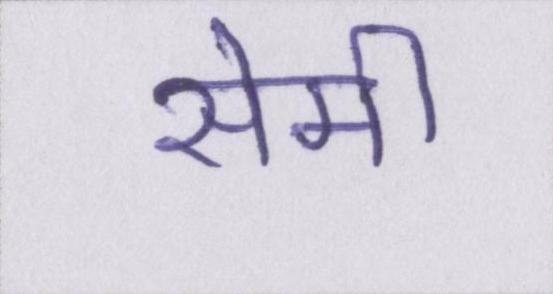 सेमी